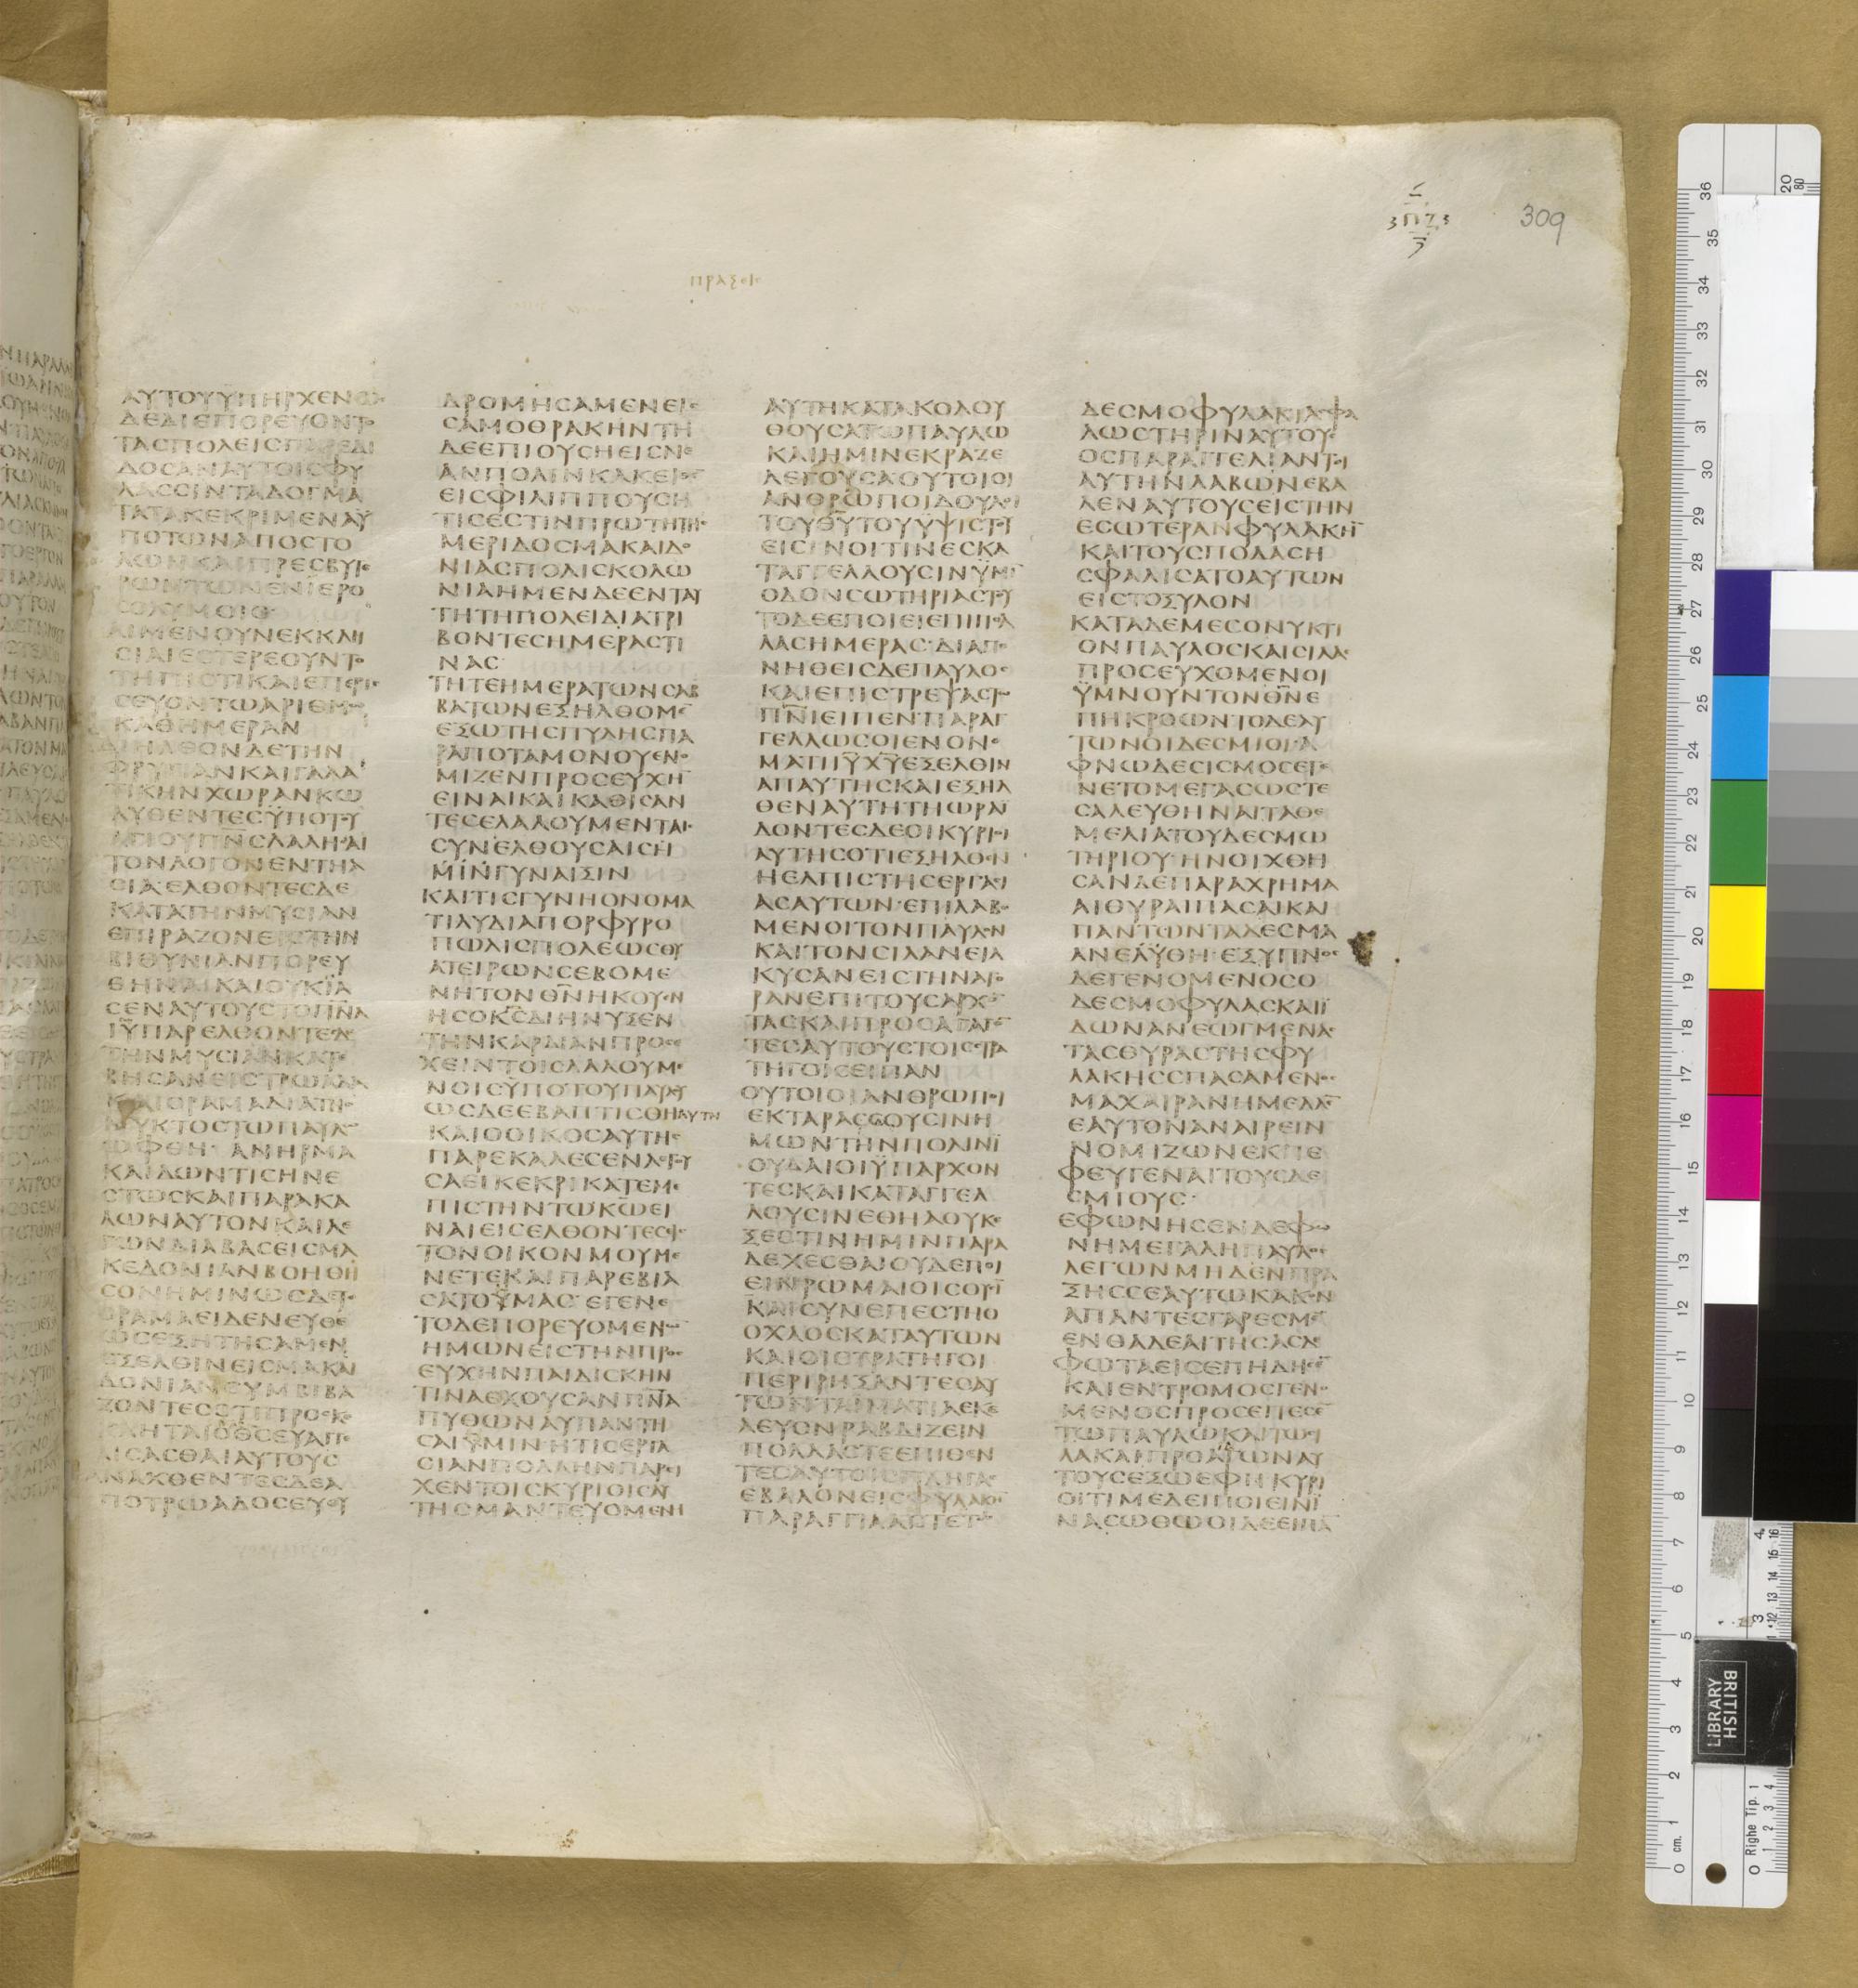 309
ΠΡΑΞΙϹ
ΑΥΤΟΥΫΠΗΡΧΕΝΩϹ
ΔΕΔΙΕΠΟΡΕΥΟΝΤΟ
ΤΑϹΠΟΛΕΙϹΠΑΡΕΔΙ
ΔΟϹΑΝΑΥΤΟΙϹΦΥ
ΛΑϹϹΙΝΤΑΔΟΓΜΑ
ΤΑΤΑΚΕΚΡΙΜΕΝΑΫ
ΠΟΤΩΝΑΠΟϹΤΟ
ΛΩΝΚΑΙΠΡΕϹΒΥΤΕ
ΡΩΝΤΩΝΕΝΪΕΡΟ
ϹΟΛΥΜΟΙϹ
ΑΙΜΕΝΟΥΝΕΚΚΛΗ
ϹΙΑΙΕϹΤΕΡΕΟΥΝΤΟ
ΤΗΠΙϹΤΙΚΑΙΕΠΕΡΙϹ
ϹΕΥΟΝΤΩΑΡΙΘΜΩ
ΚΑΘΗΜΕΡΑΝ
ΔΙΗΛΘΟΝΔΕΤΗΝ
ΦΡΥΓΙΑΝΚΑΙΓΑΛΑ
ΤΙΚΗΝΧΩΡΑΝΚΩ
ΛΥΘΕΝΤΕϹΫΠΟΤΟΥ
ΑΓΙΟΥΠΝϹΛΑΛΗϹΑΙ
ΤΟΝΛΟΓΟΝΕΝΤΗΑ
ϹΙΑΕΛΘΟΝΤΕϹΔΕ
ΚΑΤΑΤΗΝΜΥϹΙΑΝ
ΕΠΙΡΑΖΟΝΕΙϹΤΗΝ
ΒΙΘΥΝΙΑΝΠΟΡΕΥ
ΘΗΝΑΙΚΑΙΟΥΚΪΑ
ϹΕΝΑΥΤΟΥϹΤΟΠΝΑ
ΙΥΠΑΡΕΛΘΟΝΤΕϹΔΕ
ΤΗΝΜΥϹΙΑΝΚΑΤΕ
ΒΗϹΑΝΕΙϹΤΡΩΑΔΑ
ΚΑΙΟΡΑΜΑΔΙΑΤΗϹ
ΝΥΚΤΟϹΤΩΠΑΥΛΩ
ΩΦΘΗ·ΑΝΗΡΜΑ
ΚΑΙΔΩΝΤΙϹΗΝΕ
ϹΤΩϹΚΑΙΠΑΡΑΚΑ
ΛΩΝΑΥΤΟΝΚΑΙΛΕ
ΓΩΝΔΙΑΒΑϹΕΙϹΜΑ
ΚΕΔΟΝΙΑΝΒΟΗΘΗ
ϹΟΝΗΜΙΝΩϹΔΕΤΟ
ΟΡΑΜΑΕΙΔΕΝΕΥΘΕ
ΩϹΕΞΗΤΗϹΑΜΕΝ
ΕΞΕΛΘΙΝΕΙϹΜΑΚΑΙ
ΔΟΝΙΑΝϹΥΜΒΙΒΑ
ΖΟΝΤΕϹΟΤΙΠΡΟϹΚΕ
ΚΛΗΤΑΙΟΘϹΕΥΑΓΓΕ
ΛΙϹΑϹΘΑΙΑΥΤΟΥϹ
ΑΝΑΧΘΕΝΤΕϹΔΕΑ
ΠΟΤΡΩΑΔΟϹΕΥΘΥ
ΔΡΟΜΗϹΑΜΕΝΕΙϹ
ϹΑΜΟΘΡΑΚΗΝΤΗ
ΔΕΕΠΙΟΥϹΗΕΙϹΝΕ
ΑΝΠΟΛΙΝΚΑΚΕΙΘΕ
ΕΙϹΦΙΛΙΠΠΟΥϹΗ
ΤΙϹΕϹΤΙΝΠΡΩΤΗΤΗϹ
ΜΕΡΙΔΟϹΜΑΚΑΙΔΟ
ΝΙΑϹΠΟΛΙϹΚΟΛΩ
ΝΙΑΗΜΕΝΔΕΕΝΤΑΥ
ΤΗΤΗΠΟΛΕΙΔΙΑΤΡΙ
ΒΟΝΤΕϹΗΜΕΡΑϹΤΙ
ΝΑϹ
ΤΗΤΕΗΜΕΡΑΤΩΝϹΑΒ
ΒΑΤΩΝΕΞΗΛΘΟΜΕ
ΕΞΩΤΗϹΠΥΛΗϹΠΑ
ΡΑΠΟΤΑΜΟΝΟΥΕΝΟ
ΜΙΖΕΝΠΡΟϹΕΥΧΗ
ΕΙΝΑΙΚΑΙΚΑΘΙϹΑΝ
ΤΕϹΕΛΑΛΟΥΜΕΝΤΑΙϹ
ϹΥΝΕΛΘΟΥϹΑΙϹΗ
ΜΙΝΓΥΝΑΙΞΙΝ
ΚΑΙΤΙϹΓΥΝΗΟΝΟΜΑ
ΤΙΛΥΔΙΑΠΟΡΦΥΡΟ
ΠΩΛΙϹΠΟΛΕΩϹΘΥ
ΑΤΕΙΡΩΝϹΕΒΟΜΕ
ΝΗΤΟΝΘΝΗΚΟΥΕΝ
ΗϹΟΚϹΔΙΗΝΥΞΕΝ
ΤΗΝΚΑΡΔΙΑΝΠΡΟϹΕ
ΧΕΙΝΤΟΙϹΛΑΛΟΥΜΕ
ΝΟΙϹΫΠΟΤΟΥΠΑΥΛΟΥ
ΩϹΔΕΕΒΑΠΤΙϹΘΗΑΥΤΗ
ΚΑΙΟΟΙΚΟϹΑΥΤΗϹ
ΠΑΡΕΚΑΛΕϹΕΝΛΕΓΟΥ
ϹΑΕΙΚΕΚΡΙΚΑΤΕΜΕ
ΠΙϹΤΗΝΤΩΚΩΕΙ
ΝΑΙΕΙϹΕΛΘΟΝΤΕϹΕΙϹ
ΤΟΝΟΙΚΟΝΜΟΥΜΕ
ΝΕΤΕΚΑΙΠΑΡΕΒΙΑ
ϹΑΤΟΥΜΑϹ·ΕΓΕΝΕ
ΤΟΔΕΠΟΡΕΥΟΜΕΝΩ
ΗΜΩΝΕΙϹΤΗΝΠΡΟϹ
ΕΥΧΗΝΠΑΙΔΙϹΚΗΝ
ΤΙΝΑΕΧΟΥϹΑΝΠΝΑ
ΠΥΘΩΝΑΥΠΑΝΤΗ
ϹΑΙΫΜΙΝ·ΗΤΙϹΕΡΓΑ
ϹΙΑΝΠΟΛΛΗΝΠΑΡΕΙ
ΧΕΝΤΟΙϹΚΥΡΙΟΙϹΑΥ
ΤΗϹΜΑΝΤΕΥΟΜΕΝΗ
ΑΥΤΗΚΑΤΑΚΟΛΟΥ
ΘΟΥϹΑΤΩΠΑΥΛΩ
ΚΑΙΗΜΙΝΕΚΡΑΖΕ
ΛΕΓΟΥϹΑΟΥΤΟΙΟΙ
ΑΝΘΡΩΠΟΙΔΟΥΛΟΙ
ΤΟΥΘΥΤΟΥΥΨΙϹΤΟΥ
ΕΙϹΙΝΟΙΤΙΝΕϹΚΑ
ΤΑΓΓΕΛΛΟΥϹΙΝΫΜΙ
ΟΔΟΝϹΩΤΗΡΙΑϹΤΟΥ
ΤΟΔΕΕΠΟΙΕΙΕΠΙΠΟΛ
ΛΑϹΗΜΕΡΑϹ·ΔΙΑΠΟ
ΝΗΘΕΙϹΔΕΠΑΥΛΟϹ
ΚΑΙΕΠΙϹΤΡΕΨΑϹΤΩ
ΠΝΙΕΙΠΕΝΠΑΡΑΓ
ΓΕΛΛΩϹΟΙΕΝΟΝΟ
ΜΑΤΙΙΥΧΥΕΞΕΛΘΙΝ
ΑΠΑΥΤΗϹΚΑΙΕΞΗΛ
ΘΕΝΑΥΤΗΤΗΩΡΑΪ
ΔΟΝΤΕϹΔΕΟΙΚΥΡΙΟΙ
ΑΥΤΗϹΟΤΙΕΞΗΛΘΕΝ
ΗΕΛΠΙϹΤΗϹΕΡΓΑϹΙ
ΑϹΑΥΤΩΝ·ΕΠΙΛΑΒΟ
ΜΕΝΟΙΤΟΝΠΑΥΛΟΝ
ΚΑΙΤΟΝϹΙΛΑΝΕΙΛ
ΚΥϹΑΝΕΙϹΤΗΝΑΓΟ
ΡΑΝΕΠΙΤΟΥϹΑΡΧΟ
ΤΑϹΚΑΙΠΡΟϹΑΓΑΓΟ
ΤΕϹΑΥΤΟΥϹΤΟΙϹϹΤΡΑ
ΤΗΓΟΙϹΕΙΠΑΝ
ΟΥΤΟΙΟΙΑΝΘΡΩΠΟΙ
ΕΚΤΑΡΑϹϹΟΥϹΙΝΗ
ΜΩΝΤΗΝΠΟΛΙΝΪ
ΟΥΔΑΙΟΙΫΠΑΡΧΟΝ
ΤΕϹΚΑΙΚΑΤΑΓΓΕΛ
ΛΟΥϹΙΝΕΘΗΛΟΥΚΕ
ΞΕϹΤΙΝΗΜΙΝΠΑΡΑ
ΔΕΧΕϹΘΑΙΟΥΔΕΠΟΙ
ΕΙΝΡΩΜΑΙΟΙϹΟΥϹΙ
ΚΑΙϹΥΝΕΠΕϹΤΗΟ
ΟΧΛΟϹΚΑΤΑΥΤΩΝ
ΚΑΙΟΙϹΤΡΑΤΗΓΟΙ
ΠΕΡΙΡΗΞΑΝΤΕϹΑΥ
ΤΩΝΤΑΙΜΑΤΙΑΕΚΕ
ΛΕΥΟΝΡΑΒΔΙΖΕΙΝ
ΠΟΛΛΑϹΤΕΕΠΙΘΕΝ
ΤΕϹΑΥΤΟΙϹΠΛΗΓΑϹ
ΕΒΑΛΟΝΕΙϹΦΥΛΑΚΗ
ΠΑΡΑΓΓΙΛΑΝΤΕϹΤΩ
ΔΕϹΜΟΦΥΛΑΚΙΑϹΦΑ
ΛΩϹΤΗΡΙΝΑΥΤΟΥϹ
ΟϹΠΑΡΑΓΓΕΛΙΑΝΤΟΙ
ΑΥΤΗΝΛΑΒΩΝΕΒΑ
ΛΕΝΑΥΤΟΥϹΕΙϹΤΗΝ
ΕϹΩΤΕΡΑΝΦΥΛΑΚΗ
ΚΑΙΤΟΥϹΠΟΔΑϹΗ
ϹΦΑΛΙϹΑΤΟΑΥΤΩΝ
ΕΙϹΤΟΞΥΛΟΝ
ΚΑΤΑΔΕΜΕϹΟΝΥΚΤΙ
ΟΝΠΑΥΛΟϹΚΑΙϹΙΛΑϹ
ΠΡΟϹΕΥΧΟΜΕΝΟΙ
ΫΜΝΟΥΝΤΟΝΘΝΕ
ΠΗΚΡΟΩΝΤΟΔΕΑΥ
ΤΩΝΟΙΔΕϹΜΙΟΙ·Α
ΦΝΩΔΕϹΙϹΜΟϹΕΓΕ
ΝΕΤΟΜΕΓΑϹΩϹΤΕ
ϹΑΛΕΥΘΗΝΑΙΤΑΘΕ
ΜΕΛΙΑΤΟΥΔΕϹΜΩ
ΤΗΡΙΟΥ·ΗΝΟΙΧΘΗ
ϹΑΝΔΕΠΑΡΑΧΡΗΜΑ
ΑΙΘΥΡΑΙΠΑϹΑΙΚΑΙ
ΠΑΝΤΩΝΤΑΔΕϹΜΑ
ΑΝΕΛΥΘΗ·ΕΞΥΠΝΟϹ
ΔΕΓΕΝΟΜΕΝΟϹΟ
ΔΕϹΜΟΦΥΛΑΞΚΑΙΪ
ΔΩΝΑΝΕΩΓΜΕΝΑϹ
ΤΑϹΘΥΡΑϹΤΗϹΦΥ
ΛΑΚΗϹϹΠΑϹΑΜΕΝΟϹ
ΜΑΧΑΙΡΑΝΗΜΕΛΛΕ
ΕΑΥΤΟΝΑΝΑΙΡΕΙΝ
ΝΟΜΙΖΩΝΕΚΠΕ
ΦΕΥΓΕΝΑΙΤΟΥϹΔΕ
ϹΜΙΟΥϹ·
ΕΦΩΝΗϹΕΝΔΕΦΩ
ΝΗΜΕΓΑΛΗΠΑΥΛΟϹ
ΛΕΓΩΝΜΗΔΕΝΠΡΑ
ΞΗϹϹΕΑΥΤΩΚΑΚΟΝ
ΑΠΑΝΤΕϹΓΑΡΕϹΜΕ
ΕΝΘΑΔΕΑΙΤΗϹΑϹΔΕ
ΦΩΤΑΕΙϹΕΠΗΔΗϹΕ
ΚΑΙΕΝΤΡΟΜΟϹΓΕΝΟ
ΜΕΝΟϹΠΡΟϹΕΠΕϹΕ
ΤΩΠΑΥΛΩΚΑΙΤΩϹΙ
ΛΑΚΑΙΠΡΟΑΓΩΝΑΥ
ΤΟΥϹΕΞΩΕΦΗ·ΚΥΡΙ
ΟΙΤΙΜΕΔΕΙΠΟΙΕΙΝΪ
ΝΑϹΩΘΩΟΙΔΕΕΙΠΑ